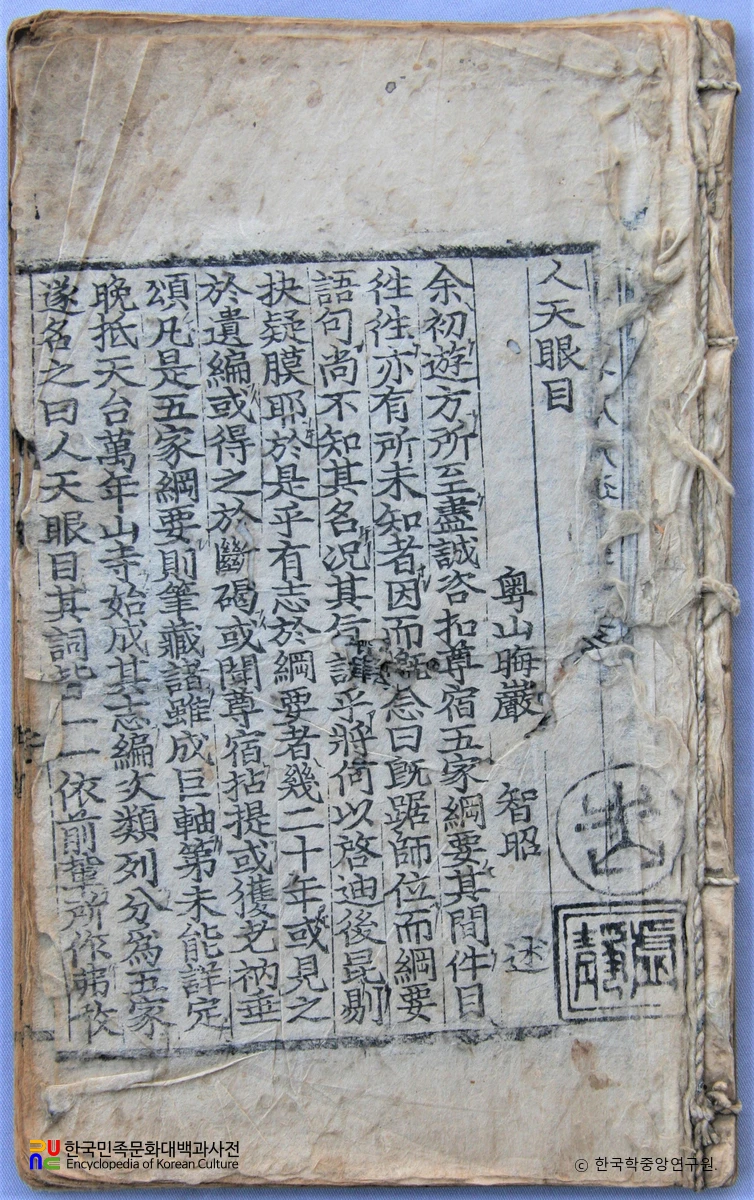 人天眼目
粤山晦巖 智昭 述
余初遊方所至盡誠咨扣尊宿五家綱要其間件目
徃徃亦有所未知者因而念曰旣踞師位而綱要
語句尚不知其名况其訣乎將何以啓迪後昆剔
抉疑膜耶於是乎有志於綱要者幾二十年或見之
於遺編或得之於斷碣或聞尊宿拈提或獲老衲垂
頌凡是五家綱要則筆藏諸雖成巨軸第未能詳定
晚抵天台萬年山寺始成其志編次類列分爲五家
遂名之曰人天眼目其詞皆一一依前輩所作弗敢
한국민족문화대백과사전
Encyclopedia of Korean Culture
© 한국학중앙연구원.